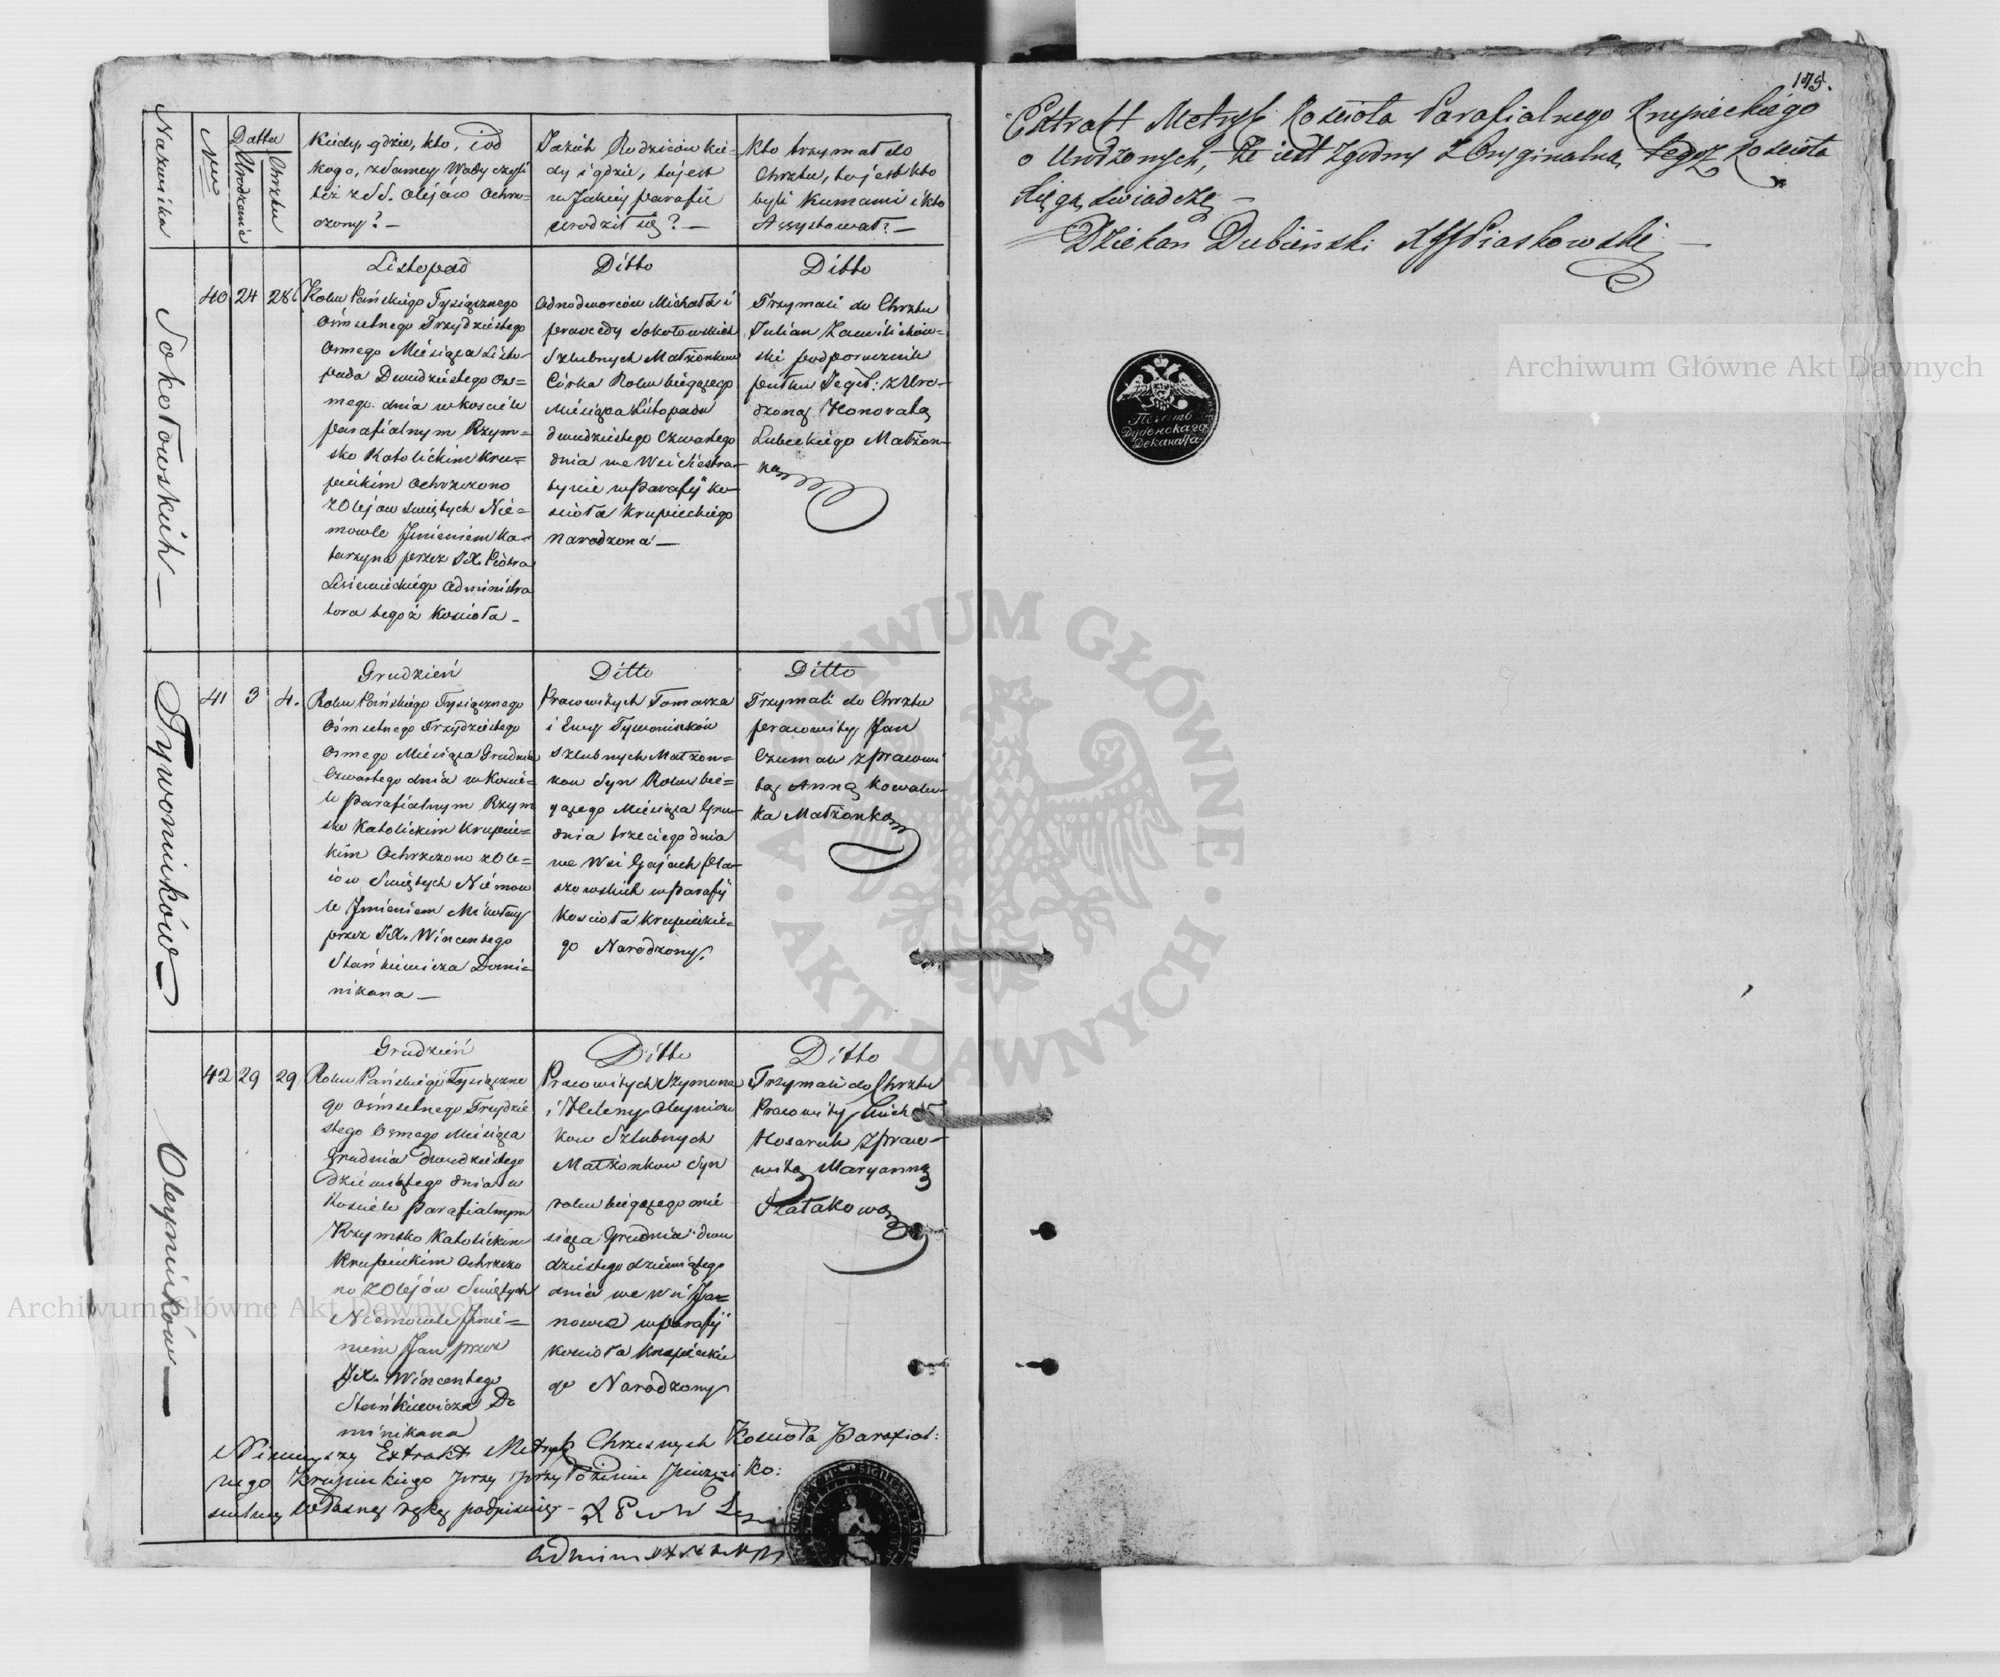 Nazwiska
Nro
Datta
Urodzenia
Chrztu
Kiedy, gdzie, kto, i od
kogo, z samey Wody czyli
téż z SS. Olejów Ochrz-
czony? —
Jakich Rodziców kie-
dy i gdzie, to jest
w Jakiéy parafii
urodził się? —
Kto trzymał do
Chrztu, to jest kto
byli Kumami i kto
Assystował? —
Sokołowskich —
40
24
28
Listopad
Roku Pańskiego Tysiącznego
Ośmsetnego Trzydziestego
Osmego Miésiąca Listo-
pada Dwudziestego Os=
mego dnia w kosciele
parafialnym Rzym=
sko Katolickim Kru=
pickim Ochrzczono
z Olejów Swiętych Nié=
mowle Jmieniem Ka-
tarzyna przez JX. Piotra
Administra
tora tegoż Kosciola —
Ditto
Odnodworców Michała i
Sokołowskich
Szlubnych Małżonków
Córka Roku biégącego
Miésiąca Listopada
dwudziestego Czwartego
dnia we Wsi
w Parafij Ko-
sciola Krupieckiego
Narodzona —
Ditto
Trzymali do Chrztu
Julian
ski podporucznik
pułku z Uro-
dzoną Honoratą
Lubeckiego Małżon-
ką
Tywoniuków —
41
3
4.
Grudzień
Roku Pańskiego Tysiącznego
Ośmsetnego Trzydziestego
Osmego Miésiąca Grudnia
Czwartego dnia w Kościé=
le Parafialnym Rzym
sko Katolickim Krupic=
kim Ochrzczono z Ole=
iów Swiętych Niémow
le Jmieniem Mikołay
przez JX. Wincentego
Stańkiewicza Domi=
nikana —
Ditto
Pracowitych Tomasza
i Ewy Tywoniuków
Szlubnych Małżon=
ków Syn Roku bié=
gącego Miésiąca Gru-
dnia trzeciego dnia
we Wsi Gajach Pla-
szowskich w Parafij
Kosciola Krupickie=
go Narodzony.
Ditto
Trzymali do Chrztu
pracowity Jan
Czumak z Pracowi
tą Anną Kowalu-
ka Małżonką
Oleyników —
42
29
29
Grudzień
Roku Pańskiego Tysiączne
go Ośmsetnego Trzydzie
stego Osmego Miésiąca
Grudnia Dwudziestego
Dziéwiątego dnia w
Kościele Parafialnym
Rzymsko Katolickim
Krupickim Ochrzczo
no z Olejów Swiętych
Niémowle Jmié=
niem Jan przez
JX. Wincentego
Stańkiewicza Do
minikana
Ditto
Pracowitych Szymona
i Heleny Oleynicu
ków Szlubnych
Małżonków Syn
roku biégącego mié
siąca Grudnia dwu
dziéstego dziewiątego
dnia we wsi Ja=
nowce w parafij
Kosciola Krupickie
go Narodzony
Ditto
Trzymali do Chrztu
Pracowity Michał
Kosaruk z praco-
witą Maryanną
Szałakową
Ninieyszy Extrakt Metryk Chrzesnych Kosciola Parafial:
nego Krupickiego przy przyłożeniu Pieczęci Ko:
scielney własną ręką podpisuię —
175.
Extrakt Metryk Kościoła Parafialnego Krupieckiego
o Urodzonych, — że iest zgodny z Oryginalną tegoż Kościoła
Xięgą swiadczę —
Dziekan Dubieński Piaskowski —
Печать
Дубенскаго
Деканата
Archiwum Główne Akt Dawnych
Archiwum Główne Akt Dawnych
ARCHIWUM GŁÓWNE · AKT DAWNYCH ·